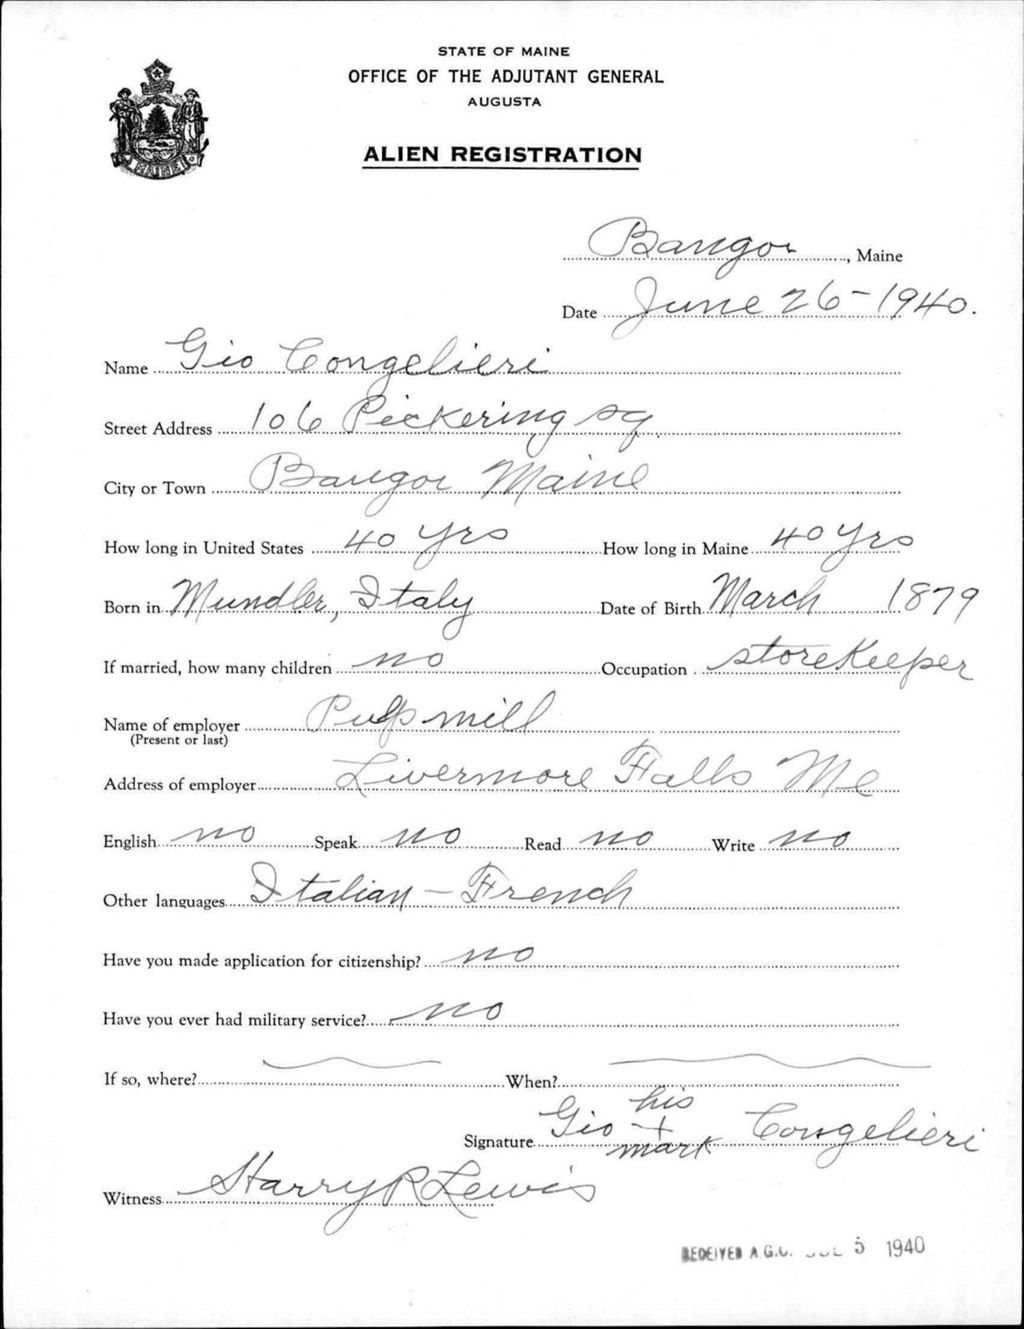 STATE OF MAINE
OFFICE OF THE ADJUTANT GENERAL
AUGUSTA
ALIEN REGISTRATION
MAINE
Bangor, Maine
Date June 26-1940.
Name Gio Congelieri
Street Address 106 Pickering sq.
City or Town Bangor Maine
How long in United States 40 yrs How long in Maine 40 yrs
Born in Mundler, Italy Date of Birth March 1879
If married, how many children no Occupation storekeeper
Name of employer Pulp mill
(Present or last)
Address of employer Livermore Falls Me
English no Speak no Read no Write no
Other languages Italian - French
Have you made application for citizenship? no
Have you ever had military service? no
If so, where? When?
his
Signature Gio + Congelieri
mark
Witness Harry R Lewis
RECEIVED A.G.O. JUL 5 1940